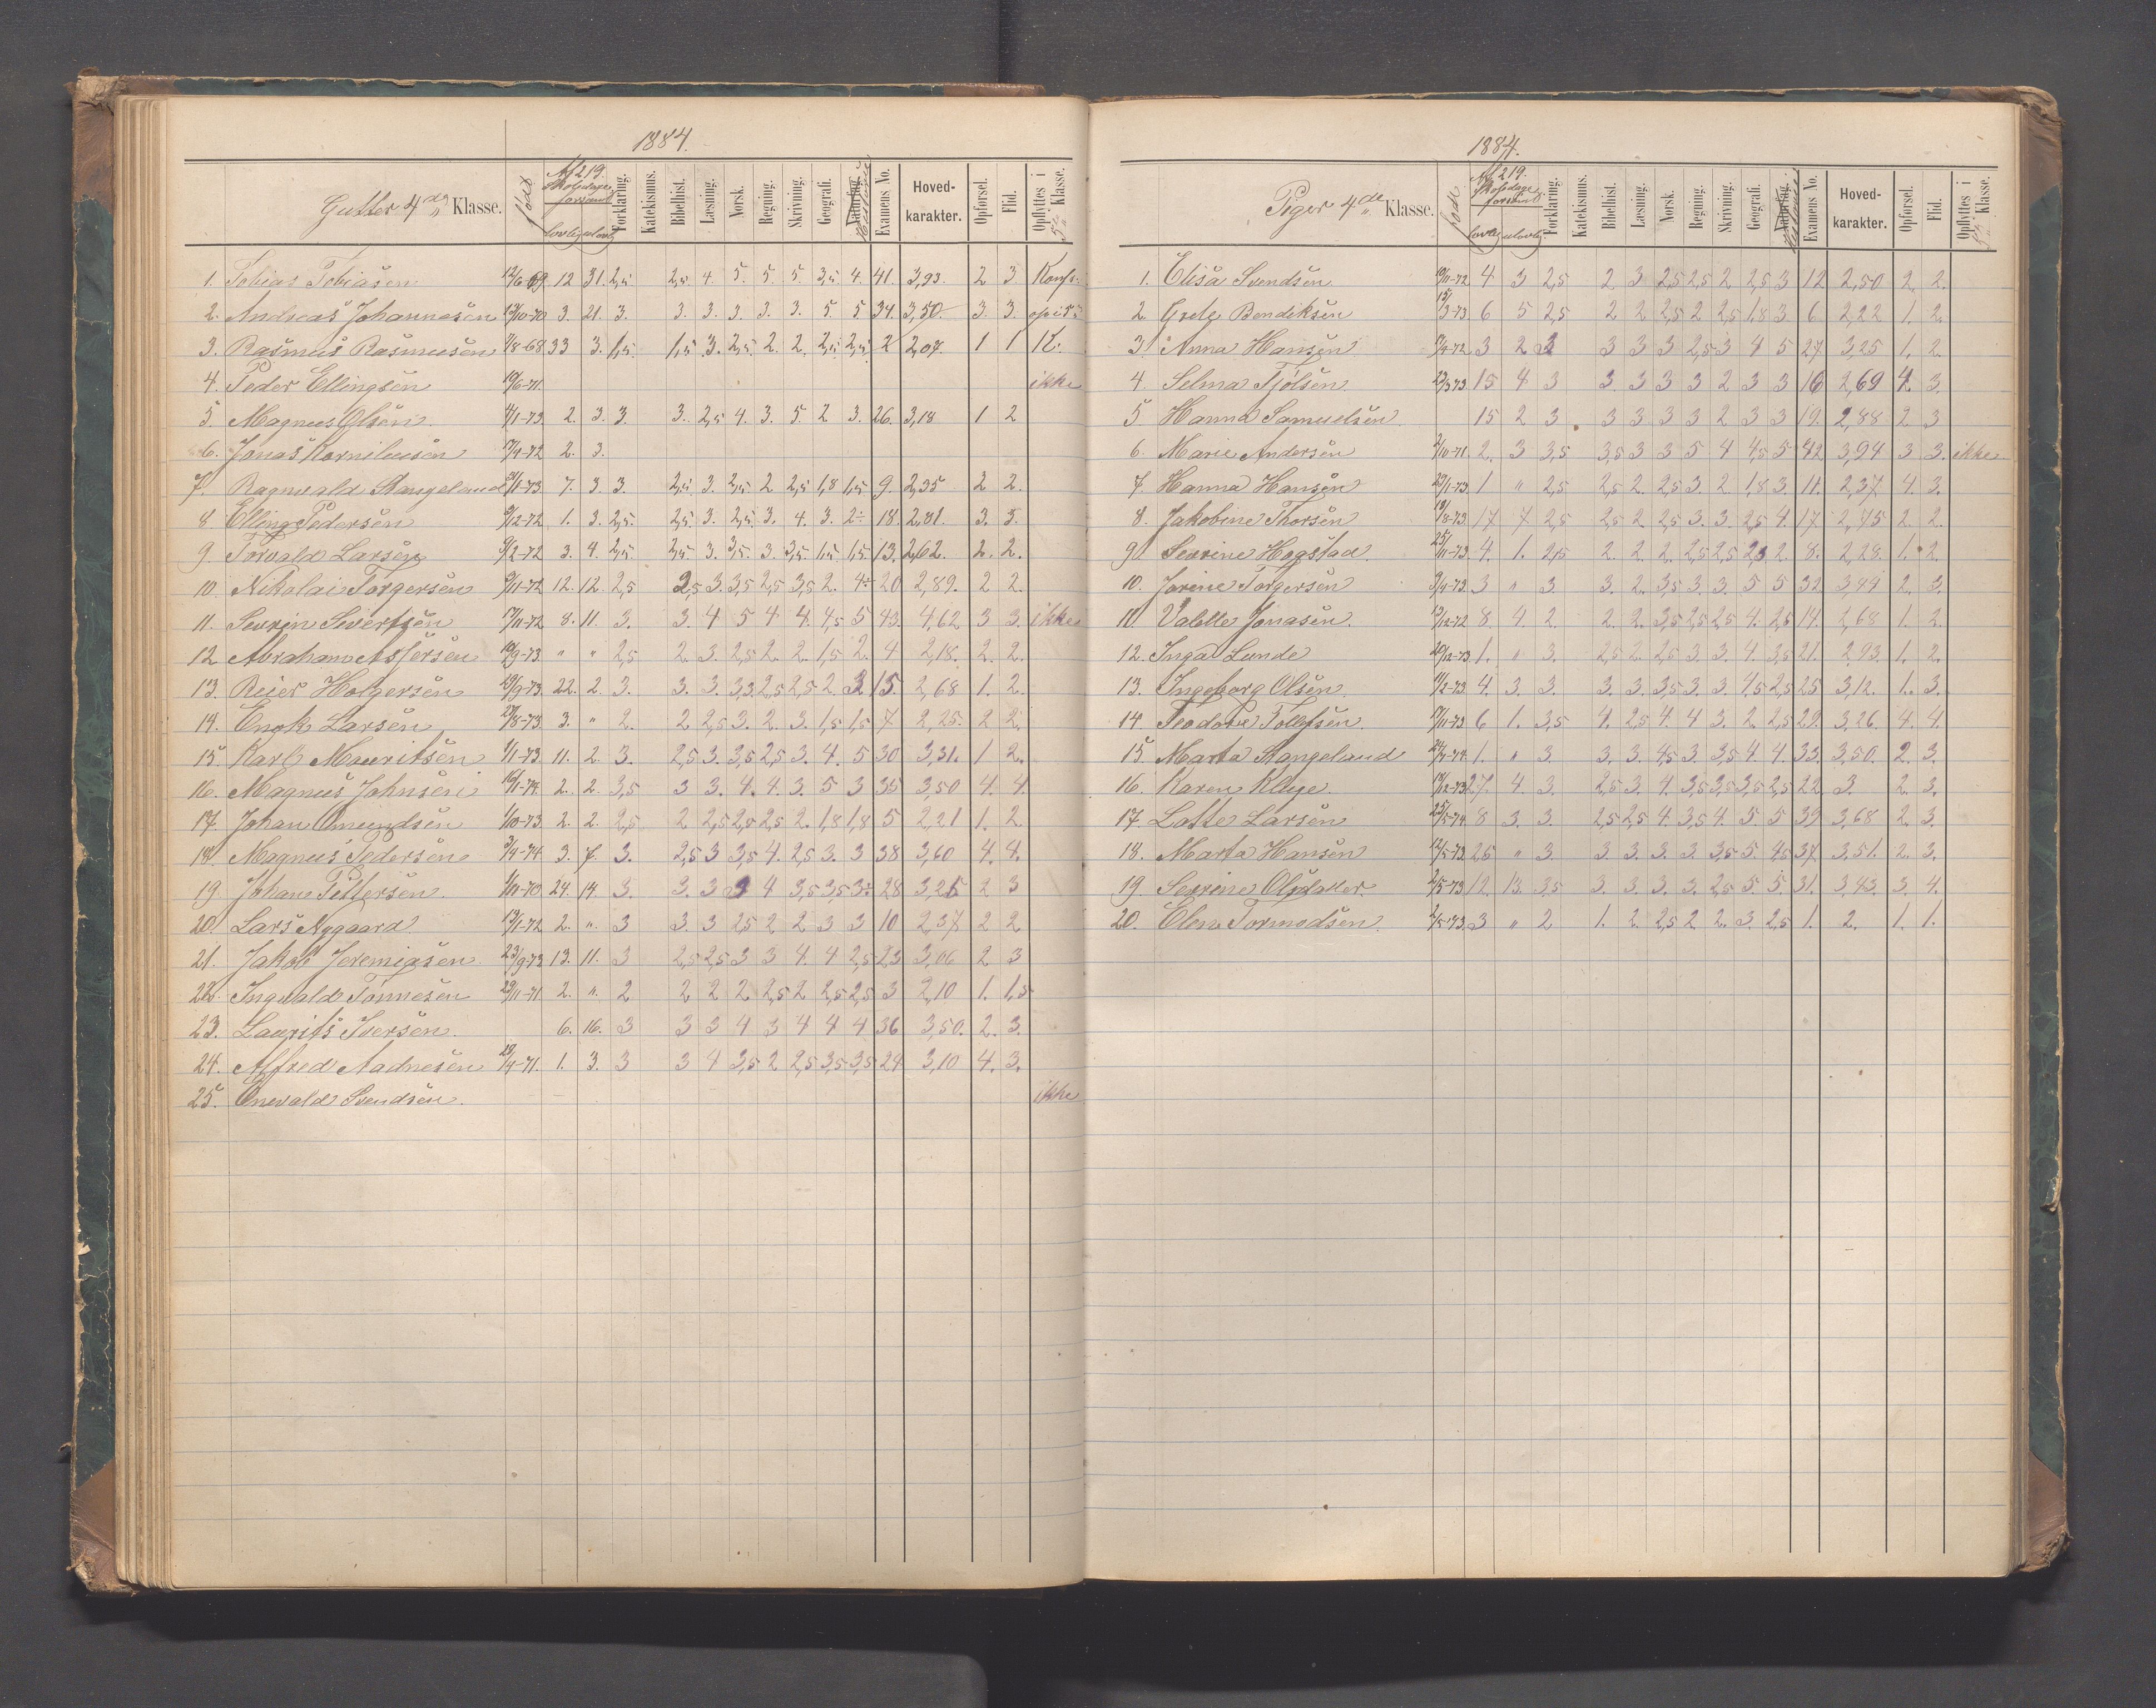 1884.
Gutter 4de Klasse.
født
Af 219. Skoledage forsømt
lovlig ulovlig
Forklaring.
Katekismus.
Bibelhist.
Læsning.
Norsk.
Regning.
Skrivning.
Geografi.
Examens No.
Hoved-karakter.
Opførsel.
Flid.
Opflyttes i 5te Klasse.
1. Tobias Tobiasen 12/6 69. 12 31. 2,5 2,5 4. 5. 5. 5. 3,5 4. 41. 3,93. 2 3 Konf.
2. Andreas Johannesen 13/10-70 3. 21. 3. 3. 3. 3. 3. 3. 5. 5 34. 3,50. 3. 3.
3. Rasmus Rasmusen /8-68 33 3. 1,5 1,5 3. 2,5 2. 2. 2,5 2,5 2 2,07. 1 1 K.
4. Peder Ellingsen 19/6-71. ikke
5. Magnus Olsen. 4/1-73. 2. 3. 3. 3. 2,5 4. 3. 5. 2 3. 26. 3,18 1 2
6. Jonas Korneliusen 17/9-72 2. 3.
7. Ragnvald Stangeland /11-73. 7. 3. 3. 2,5 3. 2,5 2 2,5 1,8 1,5 9. 2,35 2 2.
8 Elling Pedersen /12-72 1. 3. 2,5. 2,5. 3. 2,5. 3. 4. 3. 2÷ 18. 2,81. 3. 3.
9. Torvald Larsen 9/2-72 3. 4. 2,5. 2,5. 3. 3,5. 3. 3,5 1,5 1,5 13. 2,62. 2. 2.
10. Nikolai Torgersen 9/11-72 12. 12. 2,5 3,5 3. 3,5 2,5 3,5 2. 4÷ 20 2,89. 2 2.
11. Sevrin Sivertsen 17/11-72 8. 11. 3. 3. 4 5 4 4. 4,5 5 43. 4,62 3 3. ikke
12 Abraham Asjersen 18/9-73. " " 2,5 2. 3. 2,5 2. 2. 1,5 2. 4 2,18. 2. 2.
13. Reier Holgersen 29/9-73. 22. 2. 3. 3. 3. 3,3. 2,5 2,5 2. 3. 15. 2,68 1. 2.
14. Enok Larsen 27/8-73. 3. " 2. 2 2,5 3. 2. 3. 1,5 1,5 7 2,25. 2 2.
15. Karl Mauritsen 1/11-73. 11. 2. 3. 2,5 3. 3,5 2,5 3. 4. 5 30 3,31. 1 2.
16. Magnus Johnsen 16/1-74. 2. 2. 3,5 3 3. 4. 4. 3. 5 3 35 3,50 4. 4.
17. Johan Omundsen 1/10-73. 2. 2. 2,5 2 2,5 2,5 2,5 2. 1,8 1,8 5 2,21 1. 2.
18. Magnus Pedersen 3/4-74 3. 7. 3. 2,5 3 3,5 4. 2,5 3. 3 38 3,60 4. 4.
19. Johan Pettersen. 1/11-70 24. 14. 3. 3. 3 3 4 3,5 3,5 3÷ 28 3,25 2 3
20. Lars Nygaard 13/1-72 2. " 3 3. 3 2,5 2 2 3 3 10 2,37 2 2
21. Jakob Jeremiasen 23/9-73 13. 11. 3 2,5 2,5 3 3 4. 4 2,5 23 3,06 2 3
22. Ingvald Tønnesen 29/11-71. 2. " 2 2 2 2 2,5 2 2,5 2,5 3 2,10 1. 1,5
23. Laurits Iversen. 6. 16. 3 3 3 4 3 4 4 4 36 3,50. 2. 3.
24. Alfred Aadnesen 29/4-71. 1. 3. 3 3 4 3,5 2 2,5 3,5 3,5 24 3,10 4. 3.
25. Onevald Svendsen. ikke
1884.
Piger 4de Klasse.
født
Af 219. Skoledage forsømt
lovlig ulovlig
Forklaring.
Katekismus.
Bibelhist.
Læsning.
Norsk.
Regning.
Skrivning.
Geografi.
Examens No.
Hoved-karakter.
Opførsel.
Flid.
Opflyttes i 5te Klasse.
1. Elisa Svendsen 19/11-72 4 3 2,5 2 3 2,5 2,5 2 2,5 3 12 2,50 2. 2.
2. Grete Bendiksen 15/3-73 6 5 2,5 2 2 2,5 2 2,5 1,8 3 6 2,22 1. 2.
3. Anna Hansen /4-72 3 2 3 3 3 3 2,5 3 4 5 27 3,25 1. 2.
4. Selma Tjølsen 23/3 73. 15 4 3 3 3 3 3 2 3 3 16 2,69 4. 3.
5. Hanna Samuelsen 15 2 3 3 3 3 3 2 3 3 19. 2,88 2 3
6. Marie Andersen 2/10-71. 2. 3 3,5 3,5 3 3 5 4 4,5 5 42 3,94 3 3. ikke
7. Hanna Hansen 29/1-73. 1 " 2,5 2,5 2. 2,5 3. 2. 1,8 3. 11. 2,37. 4. 3.
8. Jakobine Thorsen 19/8-73 17 7 2,5 2,5 2 2,5 3. 3. 2,5 4. 17 2,75 2. 2.
9. Sevrine Hogstad. 25/11-73. 4. 1. 2,5 2. 2. 2. 2,5 2,5 2,3 2. 8. 2,28. 1. 2.
10. Jorine Torgersen 3/4-73. 3 " 3. 3. 2. 3,5 3. 3. 5 5 32 3,44 2. 3.
11 Valette Jonasen. 13/12-72 8 4. 2. 2. 2. 3,5 2,5 2,5 4. 2,5 14. 2,68 1. 2.
12. Inga Lunde 20/12-73. 1. " 3. 2,5 2. 2,5 3. 3. 4. 3,5 21. 2,93. 1. 2.
13. Ingeborg Olsen. 11/2-73. 4. 3. 3. 3. 3. 3,5 3. 3. 4,5 2,5 25 3,12. 1. 3.
14. Teodore Tollefsen. 17/11-73 6 1. 3,5 4. 2,5 4. 4 3. 2. 2,5 29. 3,26 4. 4.
15. Marta Stangeland 24/4-74. 1. " 3 3. 3. 4,5 3. 3,5 4. 4. 33. 3,50. 2. 3.
16. Karen Kluge. 19/12-73 27. 4. 3. 2,5 3. 4. 3,5 3,5 3,5 2,5 22 3. 2. 3.
17. Lotte Larsen 25/5-74. 8 3. 3. 2,5 2,5 4. 3,5 4. 5. 5 39 3,68 2. 3.
18. Marta Hansen 12/5-73. 26 " 3. 3. 3. 3. 3. 3,5 5. 4,5 37. 3,51. 2. 3.
19. Sevrine Olsdatter /5-73 12. 13. 3,5 3. 3. 3. 3. 2,5 5. 5. 31. 3,43. 3. 4.
20. Elen Tormodsen. 2/5-73. 3 " 2 1. 2. 2,5 2 2. 3. 2,5 1. 2. 1. 1.